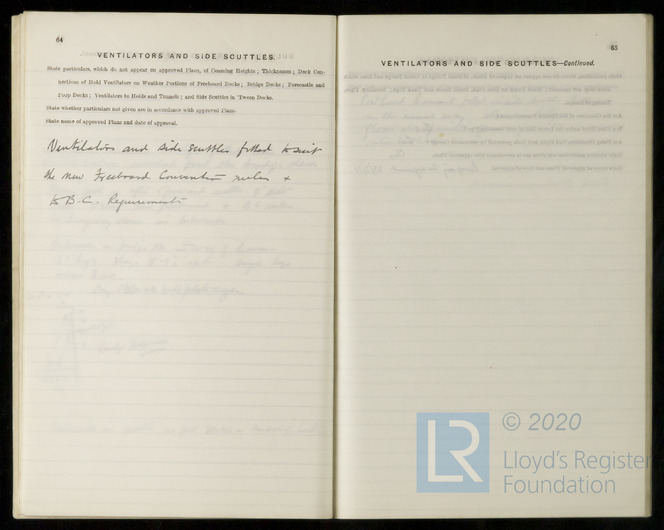 64
VENTILATORS AND SIDE SCUTTLES.
State particulars, which do not appear on approved Plans, of Coaming Heights; Thicknesses; Deck Con-
nections of Hold Ventilators on Weather Portions of Freeboard Decks; Bridge Decks; Forecastle and
Poop Decks; Ventilators to Holds and Tunnels; and Side Scuttles in 'Tween Decks.
State whether particulars not given are in accordance with approved Plans.
State name of approved Plans and date of approval.
Ventilators and side scuttles fitted to suit
the new Freeboard Convention rules &
to B.C. Requirements
65
VENTILATORS AND SIDE SCUTTLES—Continued.
LR
© 2020
Lloyd's Register
Foundation